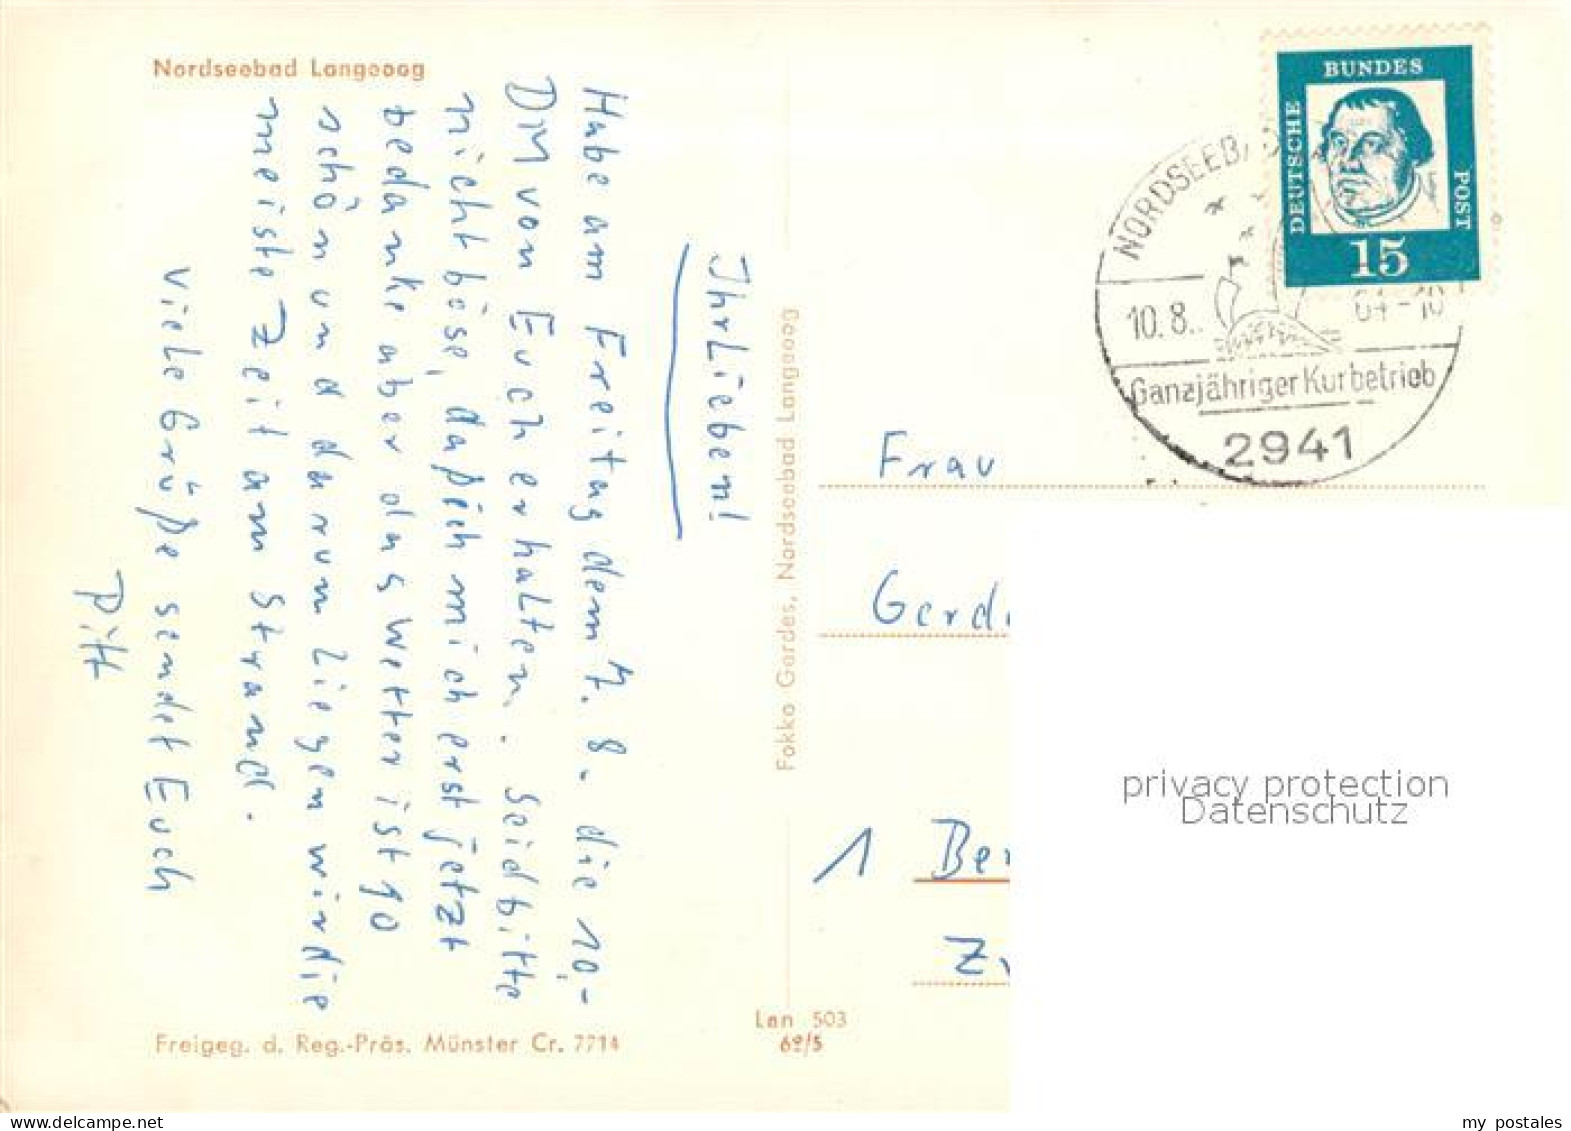 Nordseebad Langeoog
Ihr Lieben!
Habe am Freitag dem 7. 8. die 10,-
DM von Euch erhalten. Seid bitte
nicht böse, daß ich mich erst jetzt
bedanke aber das Wetter ist so
schön und darum liegen wir die
meiste Zeit am Strand.
Viele Grüße sendet Euch
Fokko Gerdes, Nordseebad Langeoog
Freigeg. d. Reg.-Präs. Münster Cr. 7714
Lan 503
62/5
DEUTSCHE BUNDES POST
15
NORDSEEBAD
10.8. 64-18
Ganzjähriger Kurbetrieb
2941
Frau
Gerd
1 Ber
privacy protection
Datenschutz
www.delcampe.net
my_postales